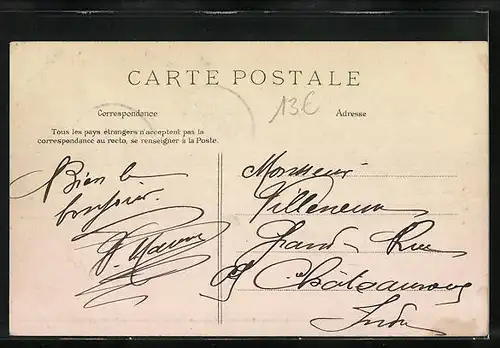 CARTE POSTALE
13€
Correspondance
Adresse
Tous les pays étrangers n'acceptent pas la
correspondance au recto, se renseigner à la Poste.
Bien le
bonjour.
Monsieur
Villeneuve
Grand-Rue
Châteauroux
Indre